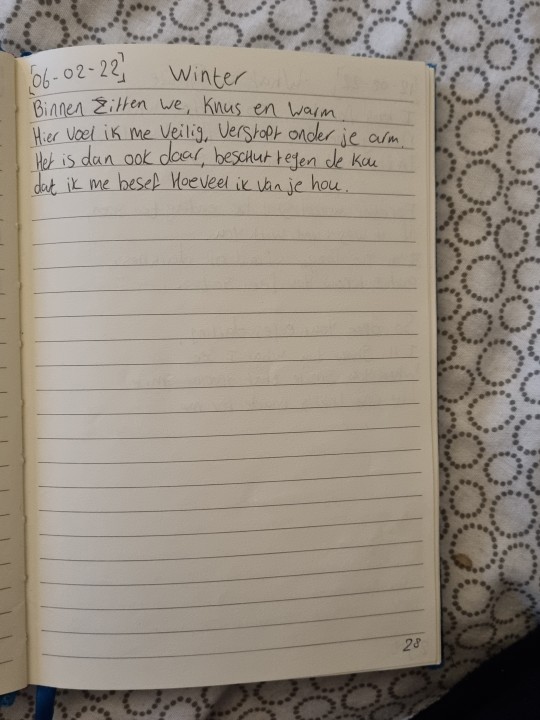 [06-02-22] Winter
Binnen zitten we, knus en warm.
Hier voel ik me veilig, verstopt onder je arm.
Het is dan ook daar, beschut tegen de kou
dat ik me besef hoeveel ik van je hou.
28